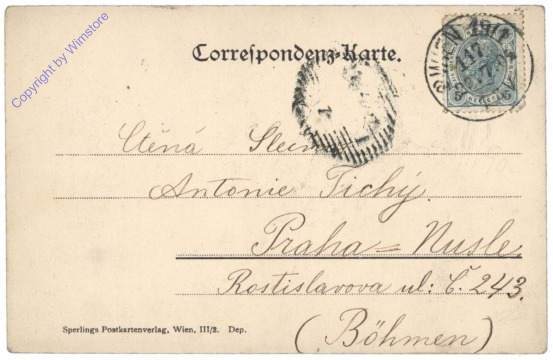 Copyright by Wimstore
Correspondenz-Karte.
WIEN
Ctěná
Antonie Tichý.
Praha = Nusle
Rostislavova ul: č. 243.
(Böhmen)
Sperlings Postkartenverlag, Wien, III/2. Dep.